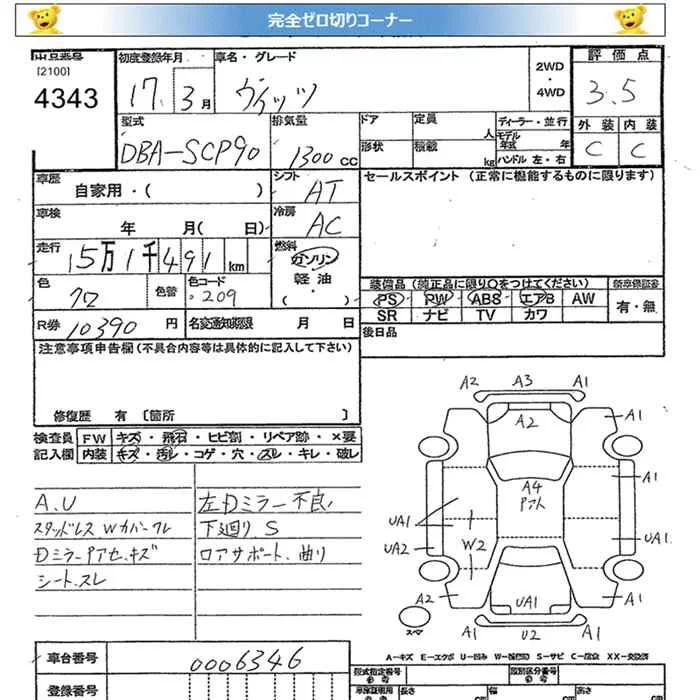 完全ゼロ切りコーナー
出品番号 初度登録年月 車名・グレード 評価点
[2100] 2WD
4343 17年 3月 ヴィッツ ・ 3.5
4WD
型式 排気量 ドア 定員 ディーラー・並行 外装 内装
DBA-SCP90 1300cc 人 モデル年式 年 C C
形状 積載 kg ハンドル 左・右
車歴 自家用・( ) シフト AT セールスポイント (正常に機能するものに限ります)
車検 年 月( 日) 冷房 AC
走行 5万1千491km 燃料 ガソリン
軽油
・( )
色 クロ 色替 色コード 209
装備品 (純正品に限り○をつけてください) 新車保証書
PS PW ABS エアB AW 有・無
SR ナビ TV カワ
R券 10390円 名変通知期限 月 日 後日品
注意事項申告欄(不具合内容等は具体的に記入して下さい)
修復歴 有 [箇所 ]
検査員 FW キズ・飛石・ヒビ割・リペア跡・×要
記入欄 内装 キズ・汚レ・コゲ・穴・スレ・キレ・破レ
A.U
スタッドレス Wカバークレ
Dミラーアセ.キズ
シート.スレ
左Dミラー不良
下廻り.S
ロアサポート.曲り
A2 A3 A1
A2 A1
A4 A1
Pアト
UA1
UA2 W2 UA1
A2 UA1 A1
スペア A1 U2 A1
A-キズ E-エクボ U-凹み W-(補修)跡 S-サビ C-腐食 XX-交換済
車台番号 0006346
登録番号
型式指定番号 類別区分番号
長さ cm 幅 cm 高さ cm